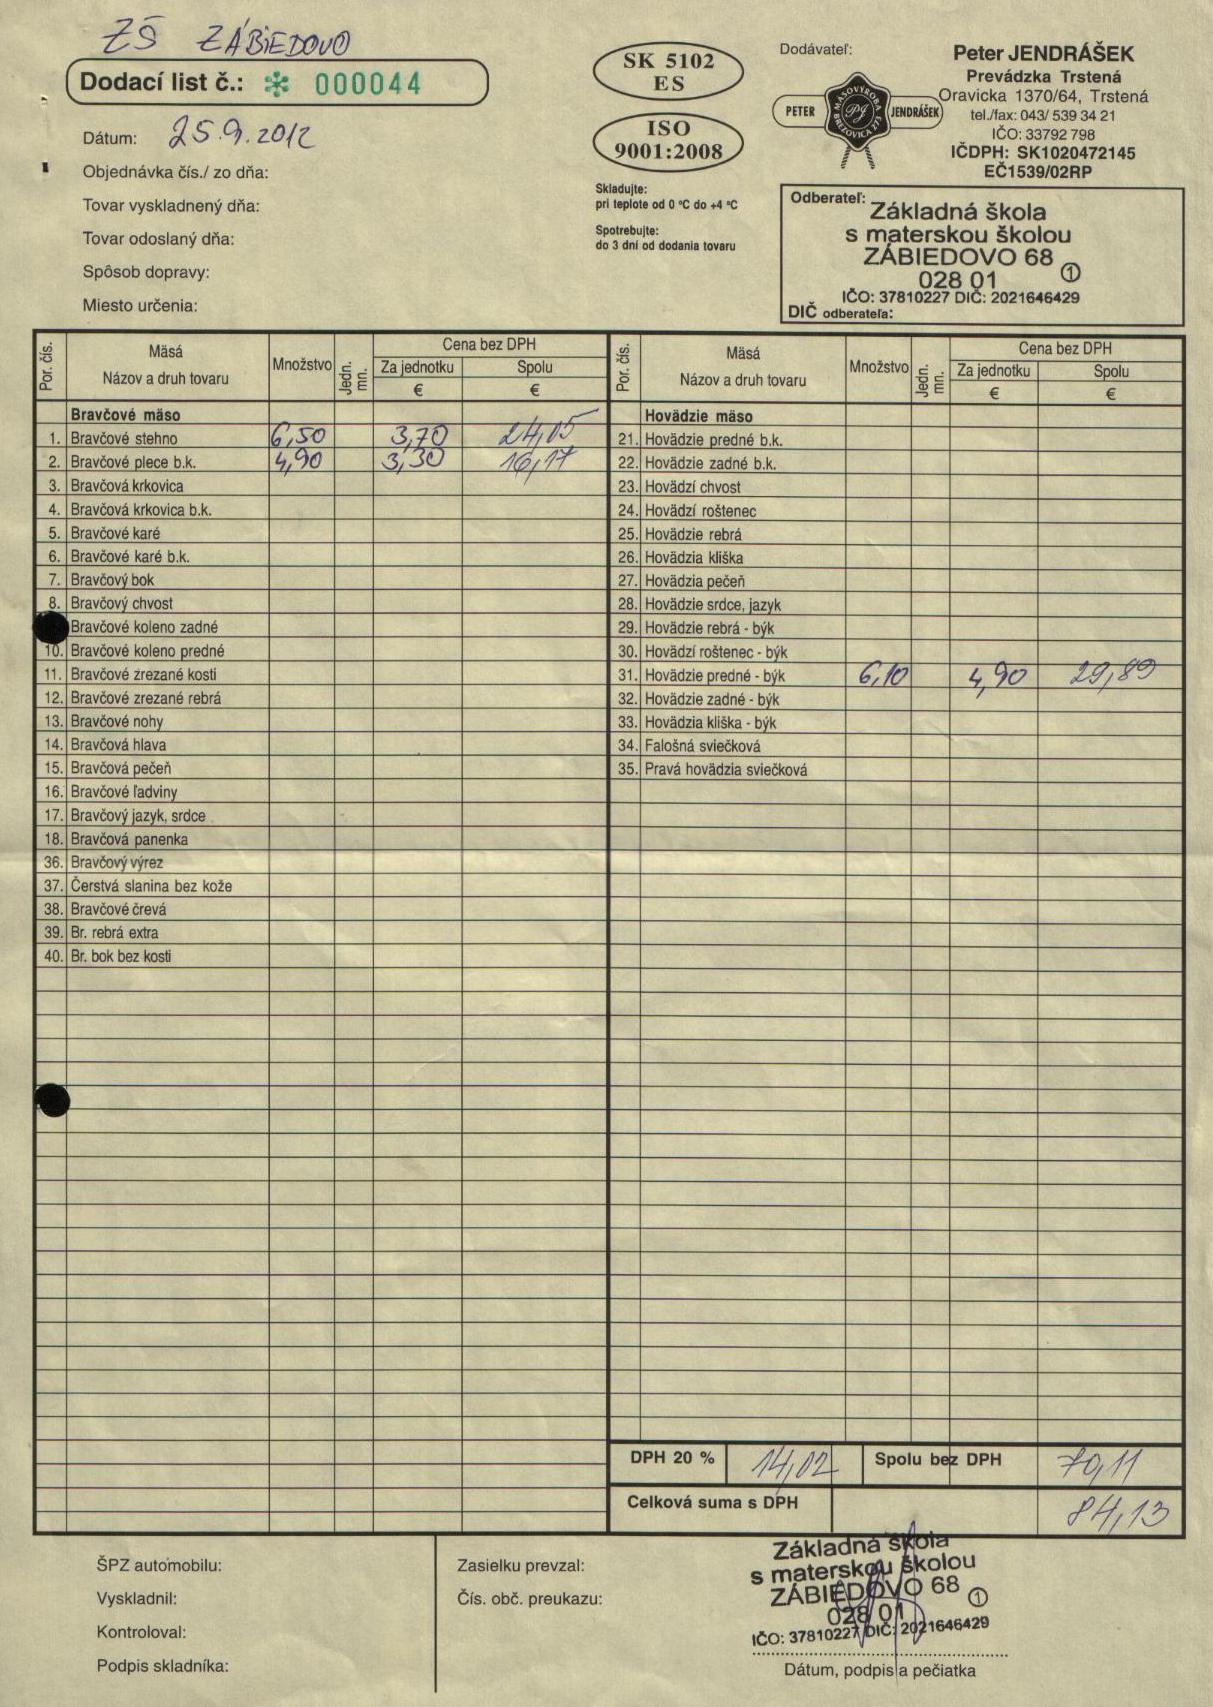 ZŠ ZÁBIEDOVO
Dodací list č.: * 000044
Dátum: 25.9.2012
Objednávka čís./ zo dňa:
Tovar vyskladnený dňa:
Tovar odoslaný dňa:
Spôsob dopravy:
Miesto určenia:
SK 5102
ES
ISO
9001:2008
Skladujte:
pri teplote od 0 °C do +4 °C
Spotrebujte:
do 3 dní od dodania tovaru
Dodávateľ:
PETER
MÄSOVÝROBA
PJ
BREZOVICA 273
JENDRÁŠEK
Peter JENDRÁŠEK
Prevádzka Trstená
Oravicka 1370/64, Trstená
tel./fax: 043/ 539 34 21
IČO: 33792 798
IČDPH: SK1020472145
EČ1539/02RP
Odberateľ:
Základná škola
s materskou školou
ZÁBIEDOVO 68
028 01 1
IČO: 37810227 DIČ: 2021646429
DIČ odberateľa:
Por. čís. Mäsá Názov a druh tovaru Množstvo Jedn. mn. Cena bez DPH Za jednotku € Spolu €
Bravčové mäso
1. Bravčové stehno 6,50 3,70 24,05
2. Bravčové plece b.k. 4,90 3,30 16,17
3. Bravčová krkovica
4. Bravčová krkovica b.k.
5. Bravčové karé
6. Bravčové karé b.k.
7. Bravčový bok
8. Bravčový chvost
Bravčové koleno zadné
10. Bravčové koleno predné
11. Bravčové zrezané kosti
12. Bravčové zrezané rebrá
13. Bravčové nohy
14. Bravčová hlava
15. Bravčová pečeň
16. Bravčové ľadviny
17. Bravčový jazyk, srdce
18. Bravčová panenka
36. Bravčový výrez
37. Čerstvá slanina bez kože
38. Bravčové črevá
39. Br. rebrá extra
40. Br. bok bez kosti
Por. čís. Mäsá Názov a druh tovaru Množstvo Jedn. mn. Cena bez DPH Za jednotku € Spolu €
Hovädzie mäso
21. Hovädzie predné b.k.
22. Hovädzie zadné b.k.
23. Hovädzí chvost
24. Hovädzí roštenec
25. Hovädzie rebrá
26. Hovädzia kliška
27. Hovädzia pečeň
28. Hovädzie srdce, jazyk
29. Hovädzie rebrá - býk
30. Hovädzí roštenec - býk
31. Hovädzie predné - býk 6,10 4,90 29,89
32. Hovädzie zadné - býk
33. Hovädzia kliška - býk
34. Falošná sviečková
35. Pravá hovädzia sviečková
DPH 20 % 14,02 Spolu bez DPH 70,11
Celková suma s DPH 84,13
ŠPZ automobilu:
Vyskladnil:
Kontroloval:
Podpis skladníka:
Zasielku prevzal:
Čís. obč. preukazu:
Základná škola
s materskou školou
ZÁBIEDOVO 68
028 01 1
IČO: 37810227 DIČ: 2021646429
Dátum, podpis a pečiatka